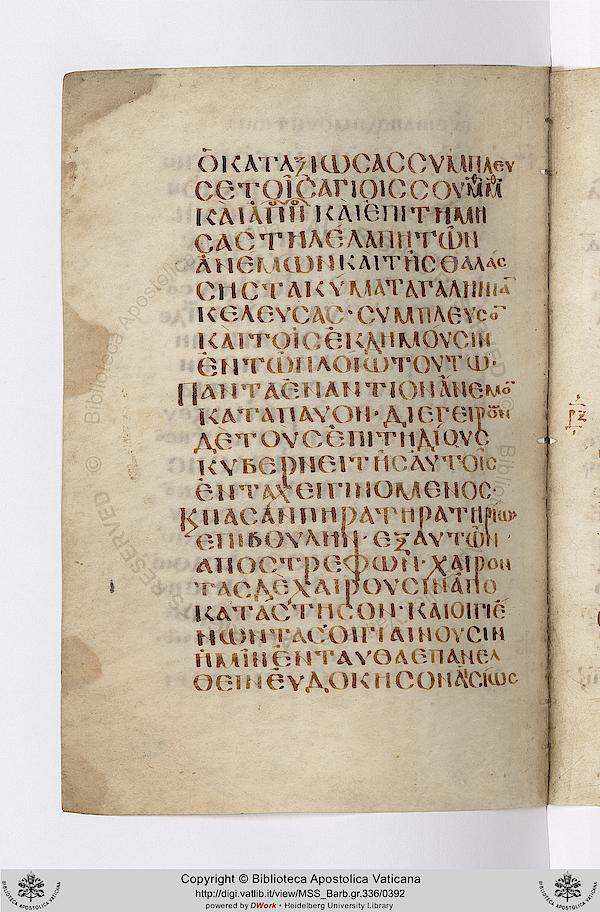 ὉΚΑΤΑΞΙΩΣΑΣΣΥΜΠΛΕΥ
ΣΕΤΟΙΣΑΓΙΟΙΣΣΟΥΜΜ
ΚΑΙΑΠΠ ΚΑΙΕΠΙΤΗΜΗ
ΣΑΣΤΗΛΕΛΑΠΗΤΩΝ
ΑΝΕΜΩΝΚΑΙΤΗΣΘΑΛΑΣ
ΣΗΣΤΑΚΥΜΑΤΑΓΑΛΗΝΙΑ
ΚΕΛΕΥΣΑΣ·ΣΥΜΠΛΕΥΣΟ
ΚΑΙΤΟΙΣΕΚΔΗΜΟΥΣΙΝ
ΕΝΤΩΠΛΟΙΩΤΟΥΤΩ·
ΠΑΝΤΑΕΝΑΝΤΙΟΝΑΝΕΜΟ
ΚΑΤΑΠΑΥΟΝ·ΔΙΕΓΕΙΡΟΝ
ΔΕΤΟΥΣΕΠΙΤΗΔΙΟΥΣ
ΚΥΒΕΡΝΕΙΤΗΣΑΥΤΟΙΣ
ΕΝΤΑΧΕΙΓΙΝΟΜΕΝΟΣ·
ΚΠΑΣΑΝΠΗΡΑΤΗΡΑΤΗΡΙΩΝ
ΕΠΙΒΟΥΛΗΝ·ΕΞΑΥΤΩΝ·
ΑΠΟΣΤΡΕΦΩΝ·ΧΑΙΡΟΝ
ΤΑΣΔΕΧΑΙΡΟΥΣΙΝΑΠΟ
ΚΑΤΑΣΤΗΣΟΝ·ΚΑΙΟΙΓΙΕ
ΝΩΝΤΑΣΟΙΓΙΑΙΝΟΥΣΙΝ
ΗΜΙΝΕΝΤΑΥΘΑΕΠΑΝΕΛ
ΘΕΙΝΕΥΔΟΚΗΣΟΝΑΣΙΩΣ
Copyright © Biblioteca Apostolica Vaticana
http://digi.vatlib.it/view/MSS_Barb.gr.336/0392
powered by DWork • Heidelberg University Library